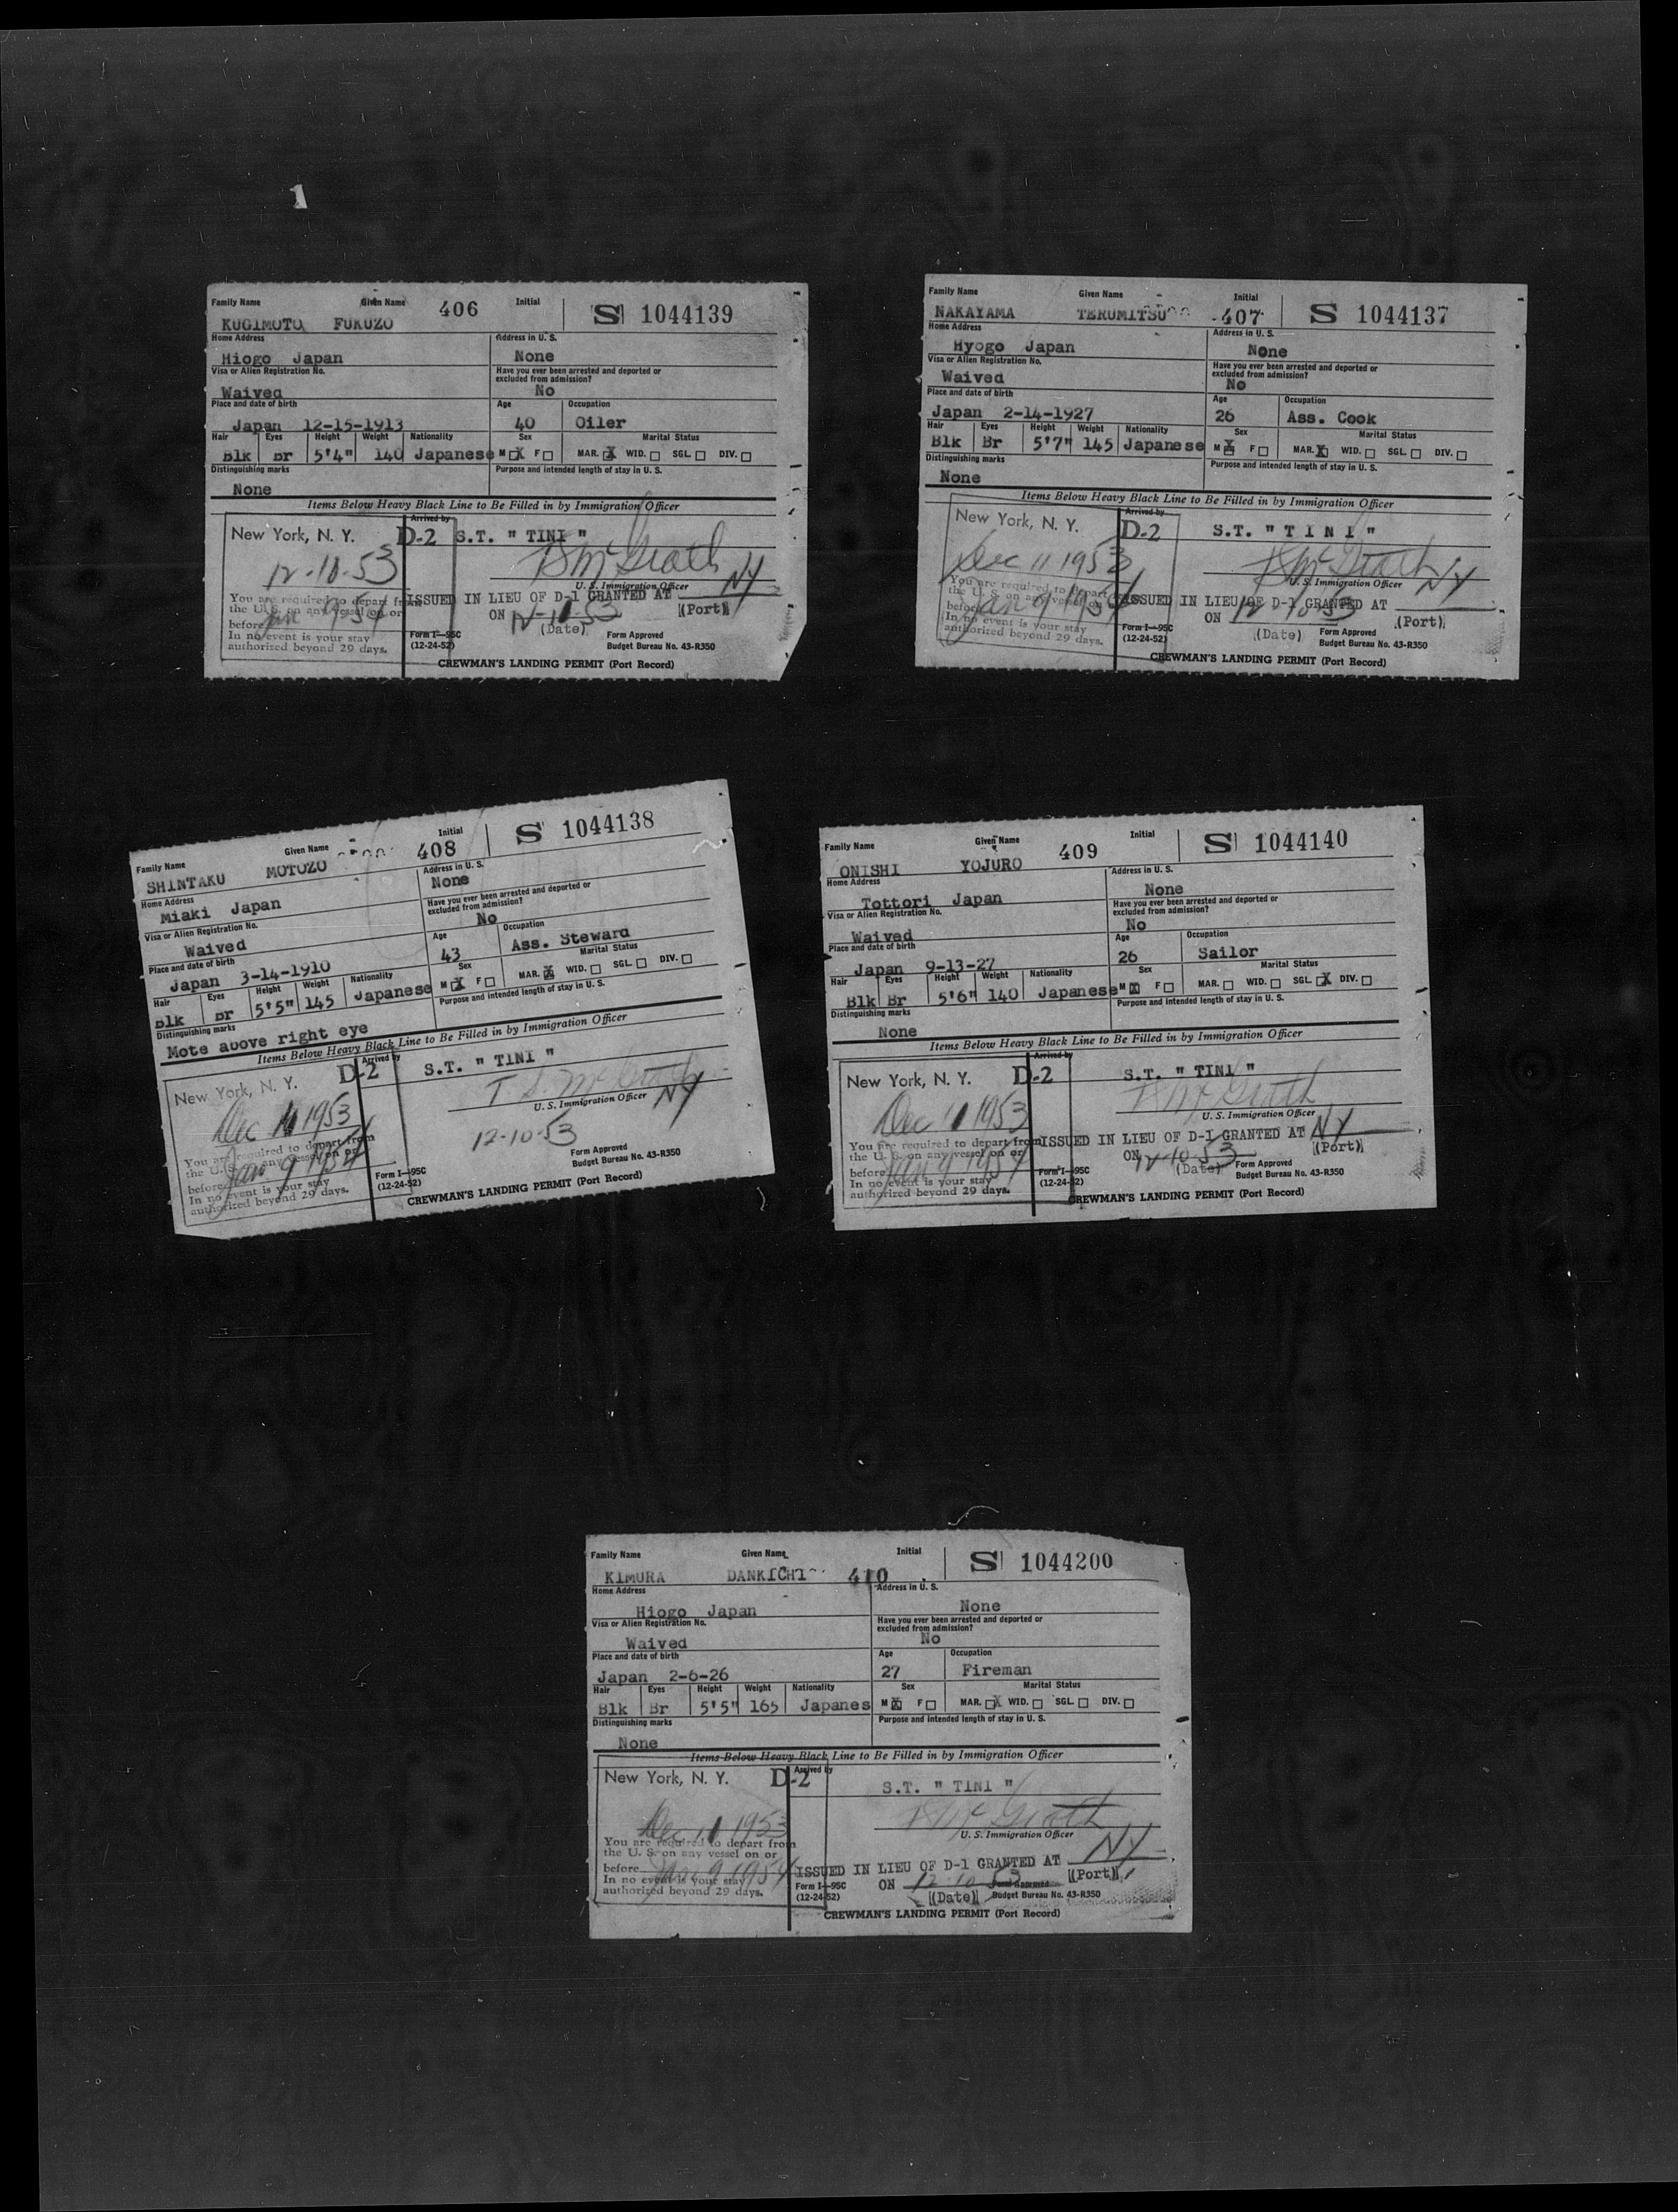 1
Family Name Given Name 406 Initial S 1044139
KUGIMOTO FUKUZO
Home Address Address in U. S.
Hiogo Japan None
Visa or Alien Registration No. Have you ever been arrested and deported or excluded from admission?
Waived No
Place and date of birth Age Occupation
Japan 12-15-1913 40 Oiler
Hair Eyes Height Weight Nationality Sex Marital Status
Blk Br 5'4" 140 Japanese M X F MAR. X WID. SGL. DIV.
Distinguishing marks Purpose and intended length of stay in U. S.
None
Items Below Heavy Black Line to Be Filled in by Immigration Officer
Arrived by
New York, N. Y. D-2 S.T. " TINI "
12-10-53 McGrath
U. S. Immigration Officer NY
You are required to depart from ISSUED IN LIEU OF D-1 GRANTED AT
the U. S. on any vessel on or ON 53 (Port)
before (Date)
In no event is your stay Form I—95C Form Approved
authorized beyond 29 days. (12-24-52) Budget Bureau No. 43-R350
CREWMAN'S LANDING PERMIT (Port Record)
Family Name Given Name Initial
NAKAYAMA TERUMITSU 407 S 1044137
Home Address Address in U. S.
Hyogo Japan None
Visa or Alien Registration No. Have you ever been arrested and deported or excluded from admission?
Waived No
Place and date of birth Age Occupation
Japan 2-14-1927 26 Ass. Cook
Hair Eyes Height Weight Nationality Sex Marital Status
Blk Br 5'7" 145 Japanese M X F MAR. X WID. SGL. DIV.
Distinguishing marks Purpose and intended length of stay in U. S.
None
Items Below Heavy Black Line to Be Filled in by Immigration Officer
Arrived by
New York, N. Y. D-2 S.T. " T I N I "
Dec 11 1953 McGrath
U. S. Immigration Officer NY
You are required to depart from
the U. S. on any vessel on or ISSUED IN LIEU OF D-1 GRANTED AT
before Jan 9 1954 ON 12 10 53 (Port)
In no event is your stay Form I—95C (Date) Form Approved
authorized beyond 29 days. (12-24-52) Budget Bureau No. 43-R350
CREWMAN'S LANDING PERMIT (Port Record)
Family Name Given Name 408 Initial S 1044138
SHINTAKU MOTOZO
Home Address Address in U. S.
Miaki Japan None
Visa or Alien Registration No. Have you ever been arrested and deported or excluded from admission?
Waived No
Place and date of birth Age Occupation
Japan 3-14-1910 43 Ass. Steward
Hair Eyes Height Weight Nationality Sex Marital Status
Blk Br 5'5" 145 Japanese M X F MAR. X WID. SGL. DIV.
Distinguishing marks Purpose and intended length of stay in U. S.
Mote above right eye
Items Below Heavy Black Line to Be Filled in by Immigration Officer
Arrived by
New York, N. Y. D-2 S.T. " TINI "
Dec 11 1953 McGrath
U. S. Immigration Officer NY
You are required to depart from 12-10-53
the U. S. on any vessel on or
before Jan 9 1954 Form Approved
In no event is your stay Form I—95C Budget Bureau No. 43-R350
authorized beyond 29 days. (12-24-52)
CREWMAN'S LANDING PERMIT (Port Record)
Family Name Given Name 409 Initial S 1044140
ONISHI YOJURO
Home Address Address in U. S.
Tottori Japan None
Visa or Alien Registration No. Have you ever been arrested and deported or excluded from admission?
Waived No
Place and date of birth Age Occupation
Japan 9-13-27 26 Sailor
Hair Eyes Height Weight Nationality Sex Marital Status
Blk Br 5'6" 140 Japanese M X F MAR. WID. SGL. X DIV.
Distinguishing marks Purpose and intended length of stay in U. S.
None
Items Below Heavy Black Line to Be Filled in by Immigration Officer
Arrived by
New York, N. Y. D-2 S.T. " TINI "
Dec 11 1953 McGrath
U. S. Immigration Officer
You are required to depart from ISSUED IN LIEU OF D-1 GRANTED AT NY
the U. S. on any vessel on or ON 12-10-53 (Port)
before Jan 9 1954 (Date) Form Approved
In no event is your stay Form I—95C Budget Bureau No. 43-R350
authorized beyond 29 days. (12-24-52)
CREWMAN'S LANDING PERMIT (Port Record)
Family Name Given Name Initial S 1044200
KIMURA DANKICHI 410
Home Address Address in U. S.
Hiogo Japan None
Visa or Alien Registration No. Have you ever been arrested and deported or excluded from admission?
Waived No
Place and date of birth Age Occupation
Japan 2-6-26 27 Fireman
Hair Eyes Height Weight Nationality Sex Marital Status
Blk Br 5'5" 165 Japanes M X F MAR. X WID. SGL. DIV.
Distinguishing marks Purpose and intended length of stay in U. S.
None
Items Below Heavy Black Line to Be Filled in by Immigration Officer
Arrived by
New York, N. Y. D-2 S.T. " TINI "
Dec 11 1953 McGrath
U. S. Immigration Officer
You are required to depart from NY
the U. S. on any vessel on or
before Jan 9 1954 ISSUED IN LIEU OF D-1 GRANTED AT
In no event is your stay Form I—95C ON 12 10 53 (Port)
authorized beyond 29 days. (12-24-52) (Date) Form Approved Budget Bureau No. 43-R350
CREWMAN'S LANDING PERMIT (Port Record)